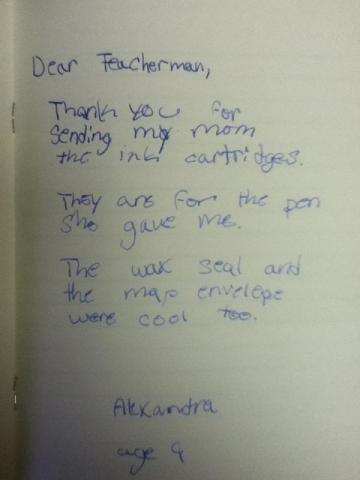 Dear Teacherman,
Thank you for
sending my mom
the ink cartridges.
They are for the pen
she gave me.
The wax seal and
the map envelope
were cool too.
Alexandra
age 9